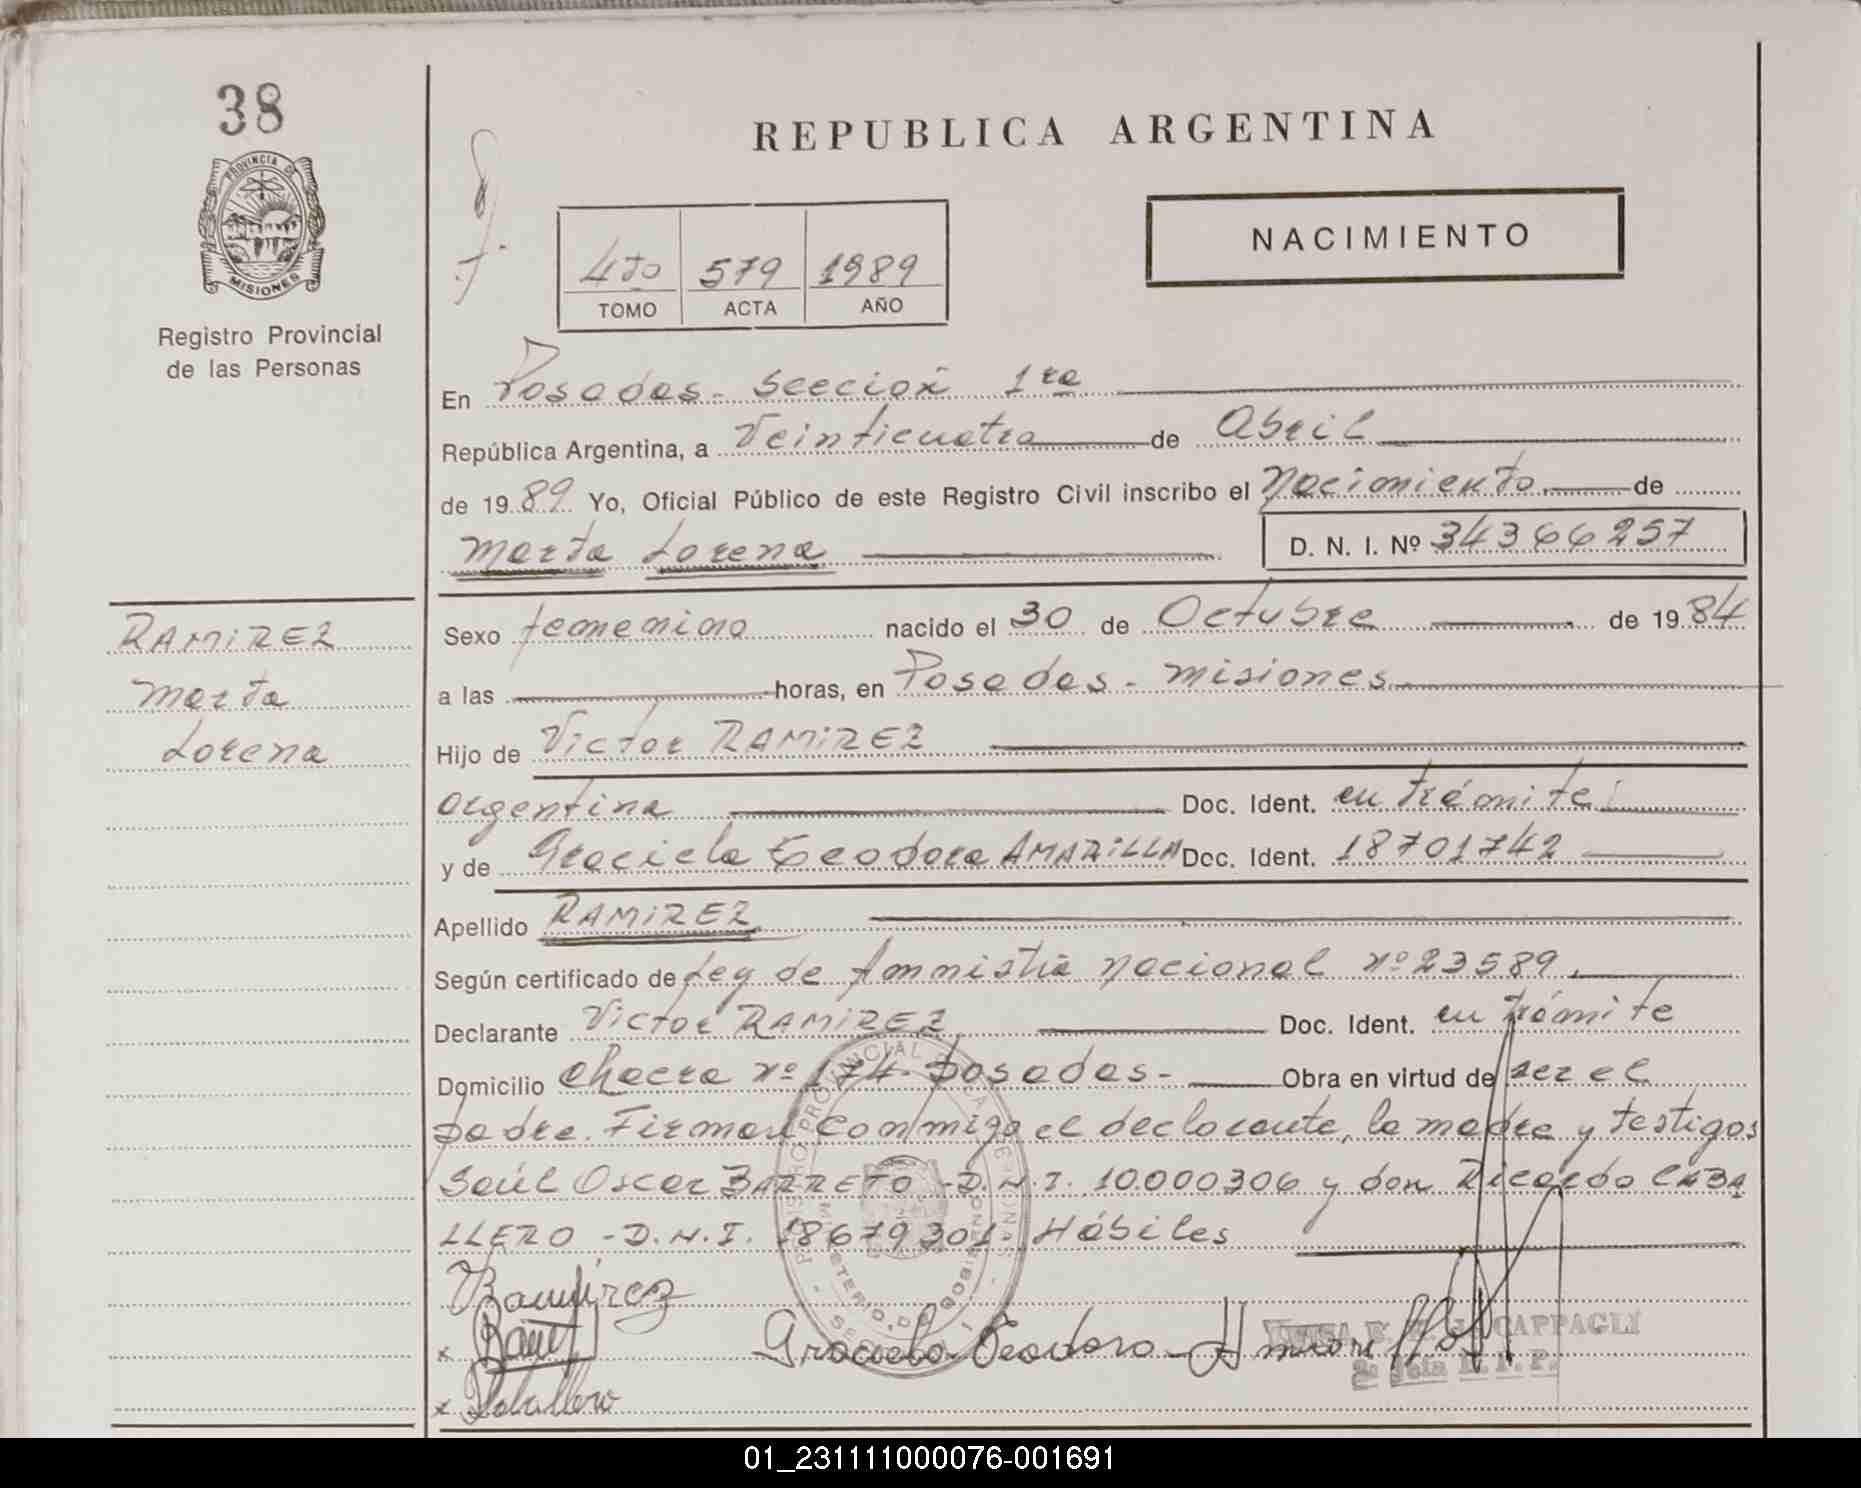 38
PROVINCIA DE
MISIONES
Registro Provincial
de las Personas
REPUBLICA ARGENTINA
NACIMIENTO
4to 579 1989
TOMO ACTA AÑO
En Posadas - Sección 1ra
República Argentina, a Veinticuatro de Abril
de 1989 Yo, Oficial Público de este Registro Civil inscribo el Nacimiento de
Marta Lorena D. N. I. Nº 34366257
RAMIREZ
Marta
Lorena
Sexo femenino nacido el 30 de Octubre de 1984
a las horas, en Posadas - Misiones
Hijo de Victor RAMIREZ
argentina Doc. Ident. en trámite
y de Graciela Teodora AMARILLA Doc. Ident. 18701742
Apellido RAMIREZ
Según certificado de Ley de Amnistia Nacional Nº 23589.
Declarante Victor RAMIREZ Doc. Ident. en trámite
Domicilio Chacra Nº 174 - Posadas - Obra en virtud de ser el
padre. Firman conmigo el declarante, la madre y testigos
Saúl Oscar BARRETO - D.N.I. 10.000306 y don Ricardo CABA
LLERO - D.N.I. 18679301 - Hábiles
Ramirez
Graciela Teodora
CAPPAGLI
x Caballero
01_231111000076-001691